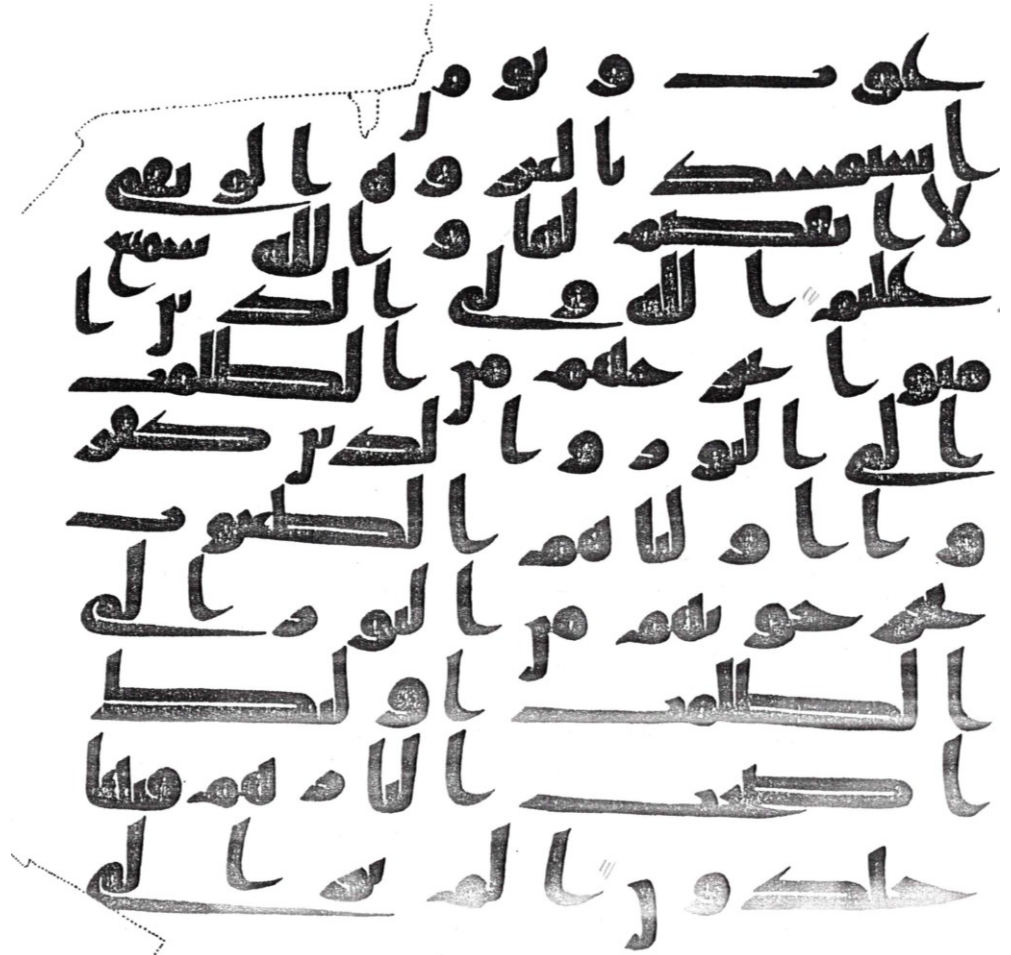 غوت و يومن
استمسك بالعروة الوثقى
لا انفصم لها و الله سميع
عليم الله ولى الذين ا
منوا يخرجهم من الظلمت
الى النور و الذين كفر
وا اوليا هم الطغوت
يخرجونهم من النور الى
الظلمت اولئك
اصحب النار هم فيها
خلدون الم تر الى